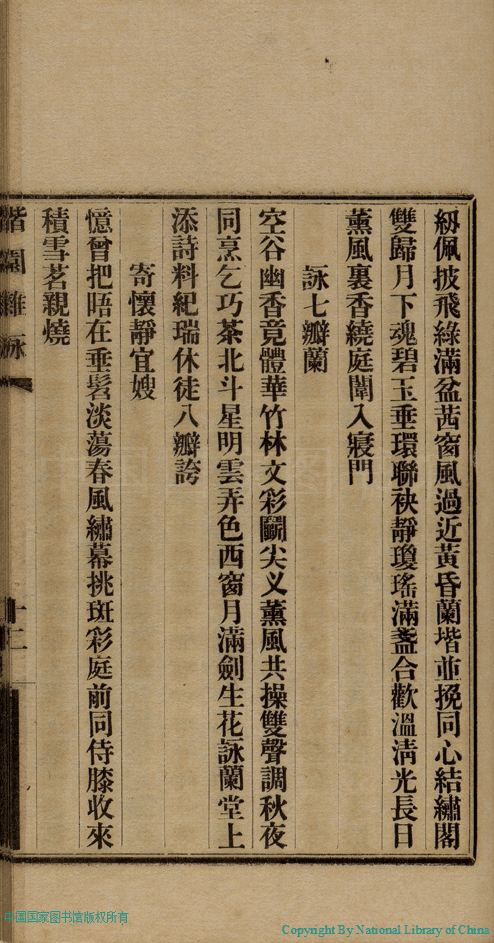 紉佩披飛綠滿盆茜窗風過近黃昏蘭堦並挽同心結繡閣
雙歸月下魂碧玉垂環聯袂靜瓊瑤滿盞合歡溫淸光長日
薰風裏香繞庭闈入寢門
詠七瓣蘭
空谷幽香竟體華竹林文彩鬭尖义薰風共操雙聲調秋夜
同烹乞巧茶北斗星明雲弄色西窗月滿劍生花詠蘭堂上
添詩料紀瑞休徒八瓣誇
寄懷靜宜嫂
憶曾把晤在垂髫淡蕩春風繡幕挑斑彩庭前同侍膝收來
積雪茗親燒
十二
中国国家图书馆版权所有
Copyright By National Library of China